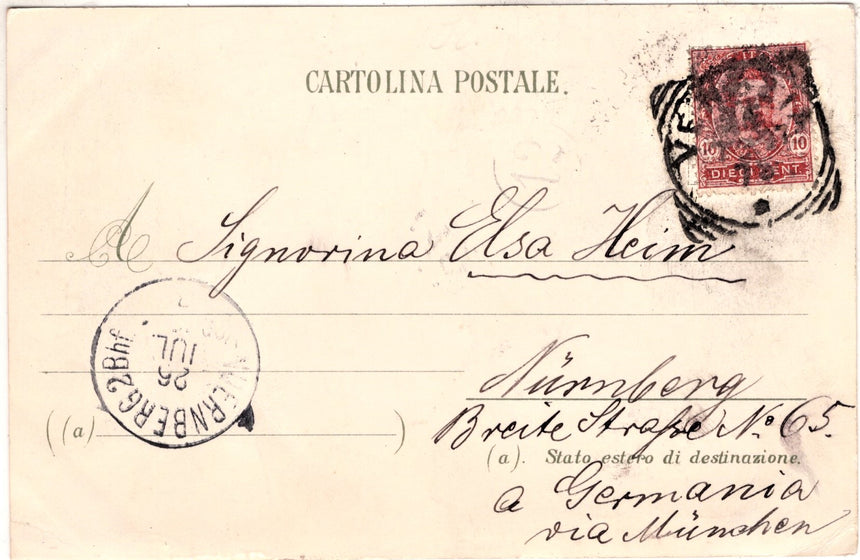 CARTOLINA POSTALE.
10 10
DIECI CENT.
A Signorina Elsa Heim
NUERNBERG 2 Bhf.
26
JUL
Nürnberg
Breite Straße No. 65.
(a)
(a). Stato estero di destinazione.
a Germania
via München